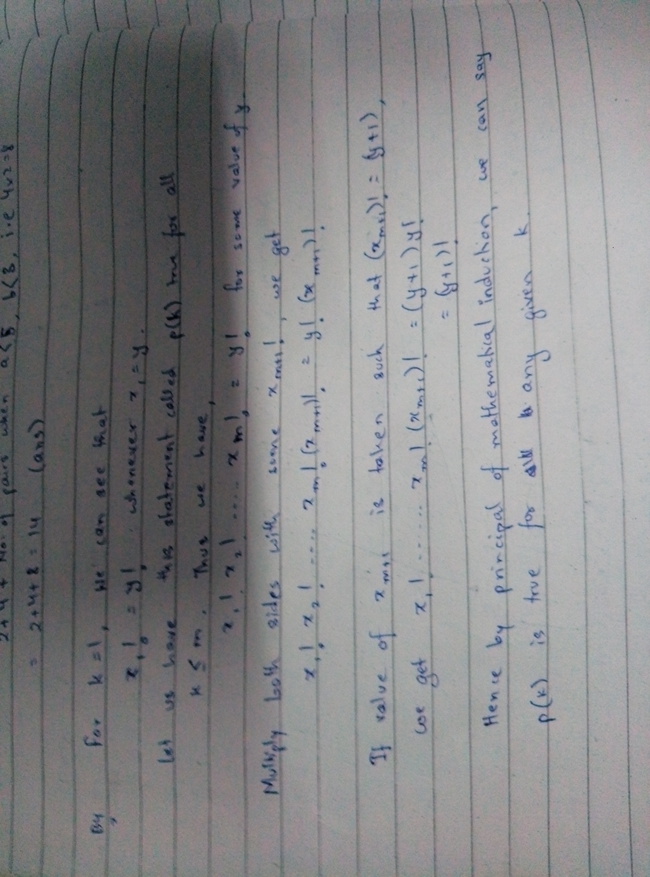 2+4+ No. of pairs when a<5, b<3, i.e 4x2=8
= 2+4+8 = 14 (ans)
By For k=1, we can see that
x₁! = y! whenever x₁ = y.
Let us have this statement called p(k) true for all
k ≤ m. Thus we have,
x₁! x₂! ..... xm! = y! for some value of y.
Multiply both sides with some xm+1!, we get
x₁! x₂! .... xm! (xm+1)! = y! (xm+1)!
If value of xm+1 is taken such that (xm+1)! = (y+1),
we get x₁! ....... xm! (xm+1)! = (y+1) y!
= (y+1)!
Hence by principal of mathematical induction, we can say
p(k) is true for any given k.